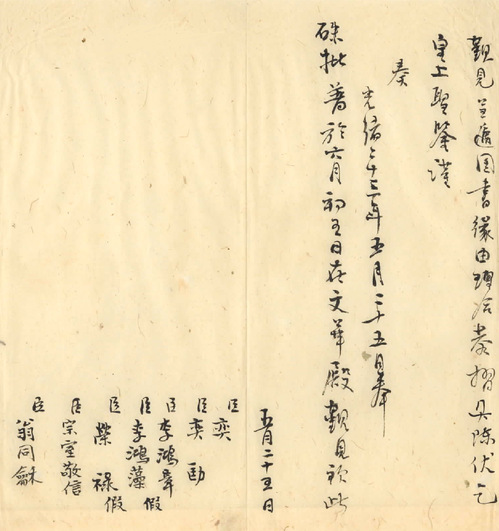 覲見呈遞國書緣由理合恭摺具陳伏乞
皇上聖鑒謹
奏
光緒二十三年五月二十五日奉
硃批著於六月初五日在文華殿覲見欽此
五月二十五日
臣奕
臣奕劻
臣李鴻章假
臣李鴻藻
臣榮祿假
臣宗室敬信
臣翁同龢